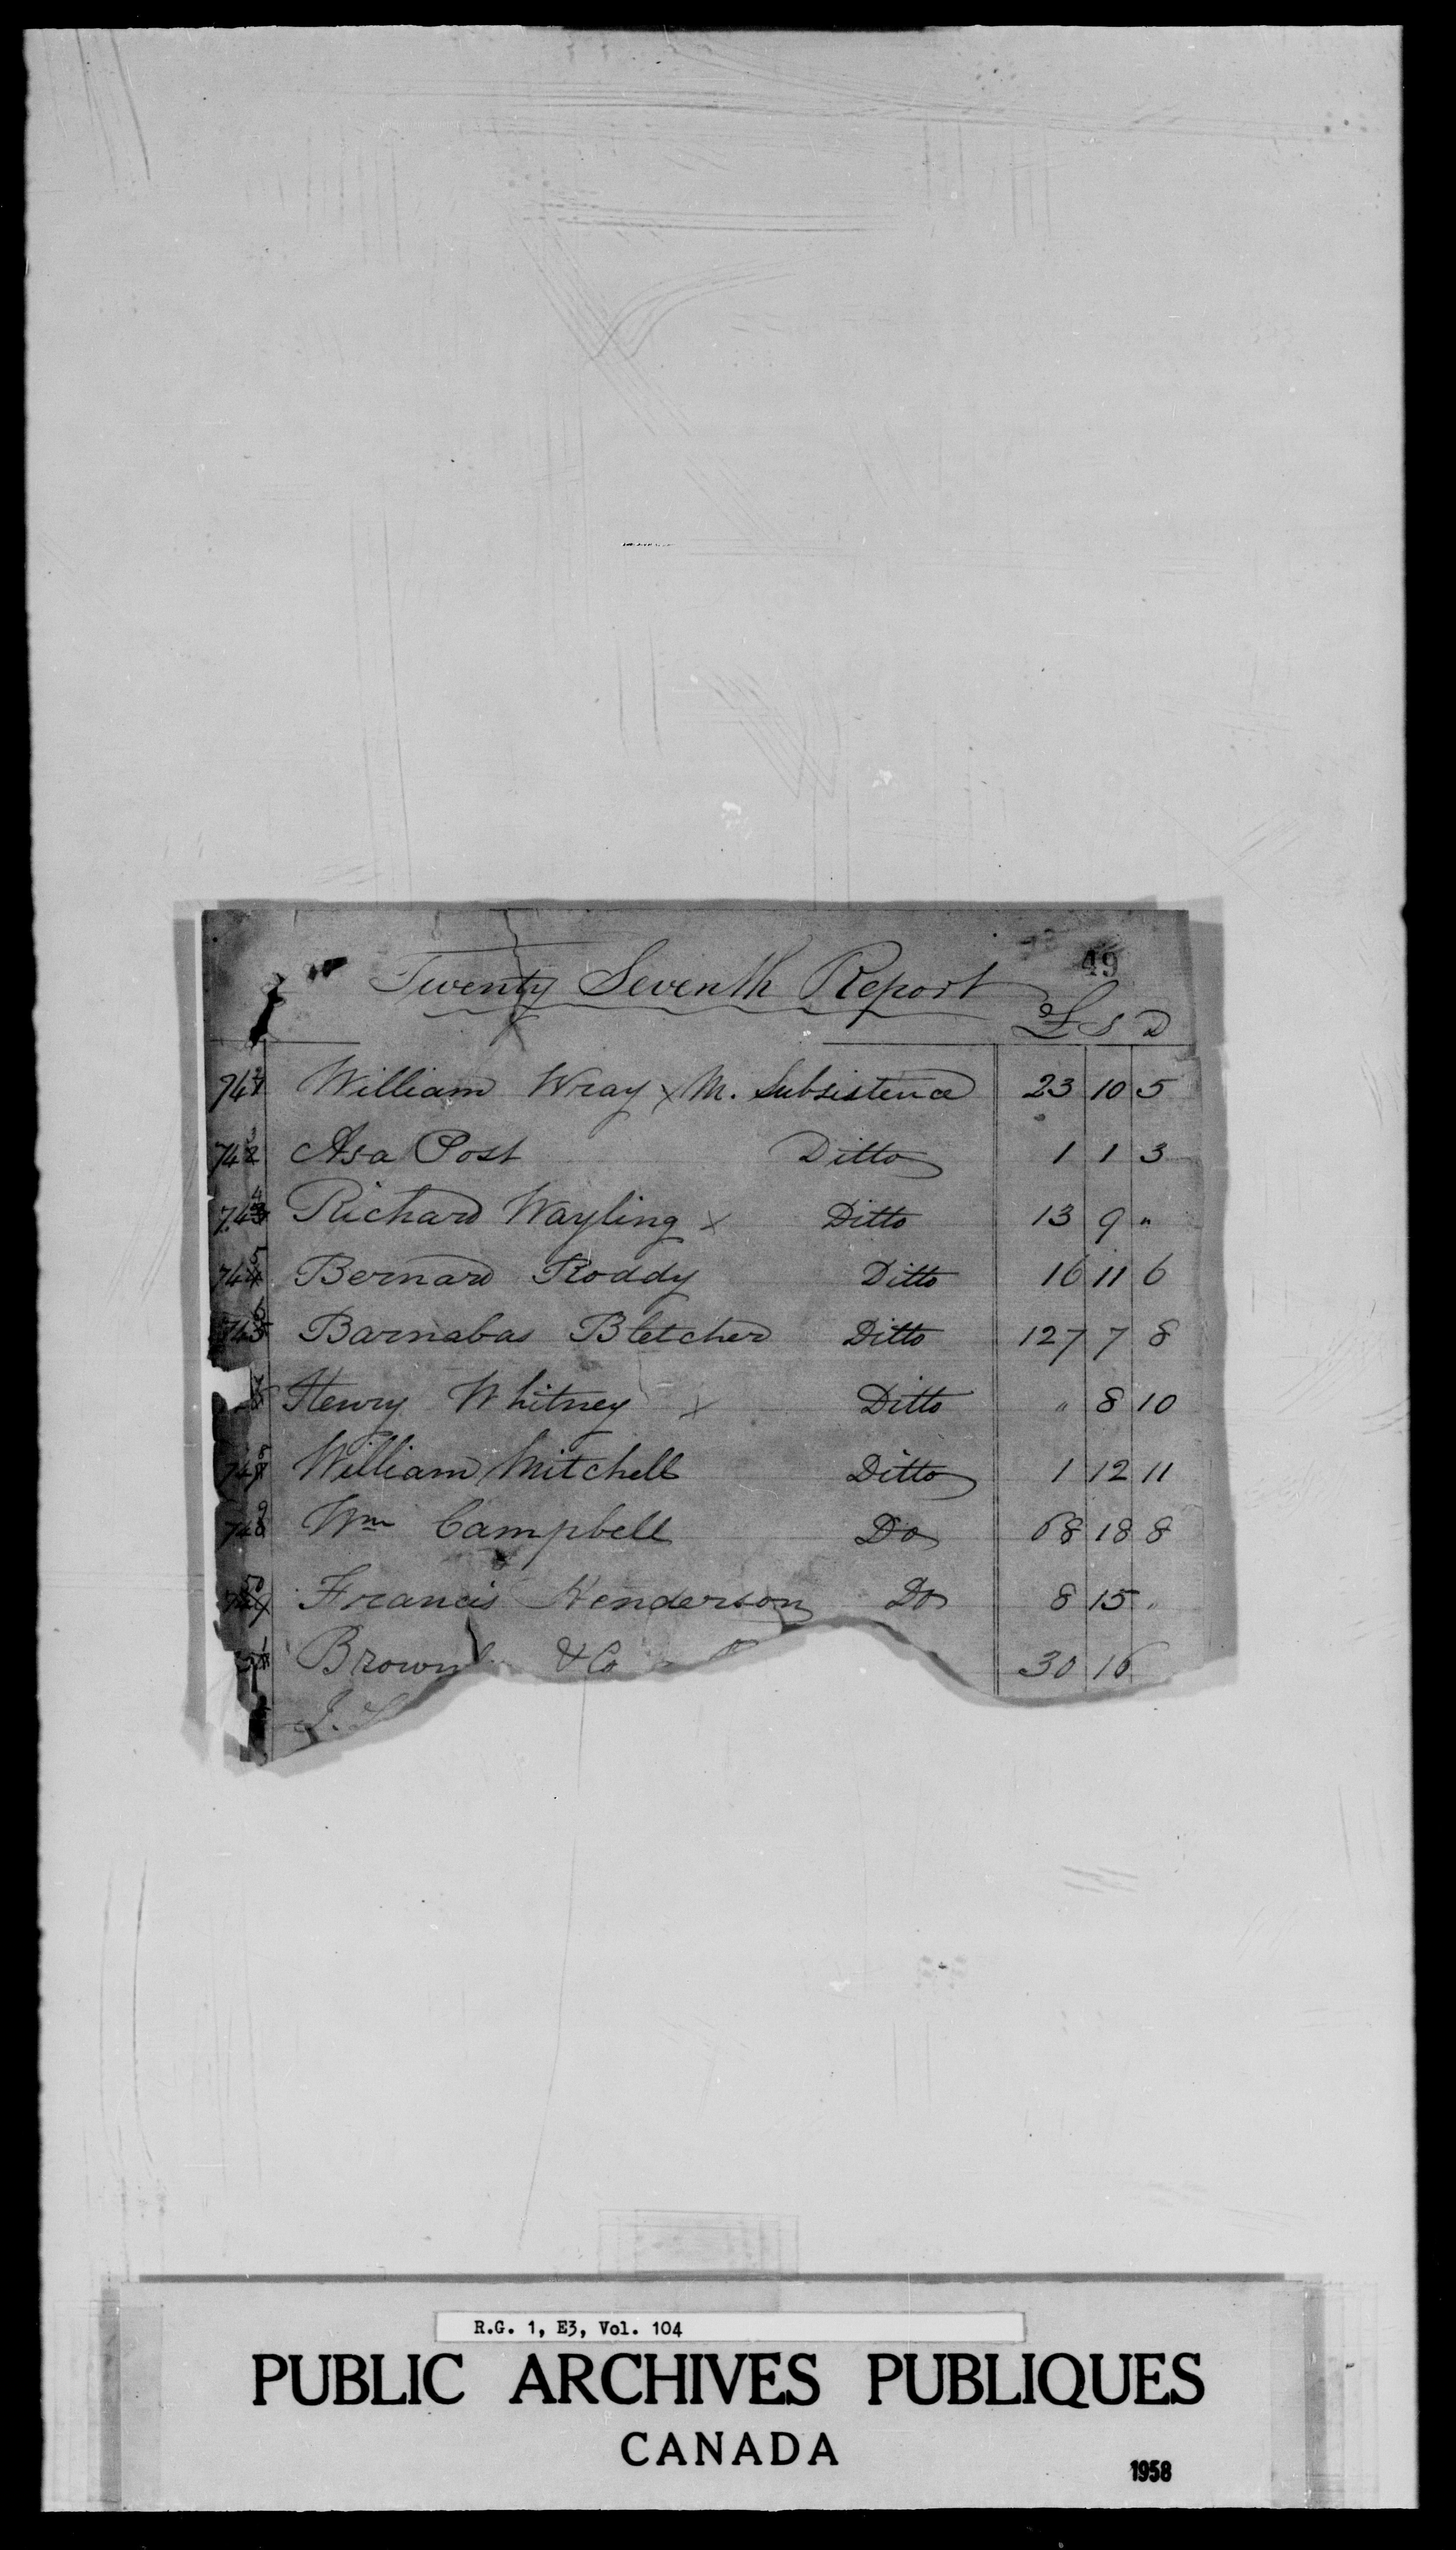 49
Twenty Seventh Report
£ S D
742 William Wray x M. Subsistence 23 10 5
743 Asa Post Ditto 1 1 3
744 Richard Wayling x Ditto 13 9 "
745 Bernard Roddy Ditto 16 11 6
746 Barnabas Bletcher Ditto 127 7 8
Henry Whitney x Ditto " 8 10
748 William Mitchell Ditto 1 12 11
749 Wm Campbell Do 68 18 8
50 Francis Henderson Do 8 15 "
51 Brown & Co 30 16
J.
R.G. 1, E3, Vol. 104
PUBLIC ARCHIVES PUBLIQUES
CANADA
1958